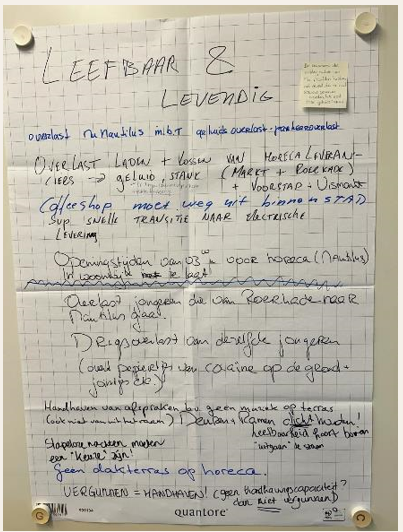 LEEFBAAR &
LEVENDIG
overlast Nautilus m.b.t geluidsoverlast - parkeeroverlast
OVERLAST LADEN + LOSSEN VAN HORECA LEVERAN-
CIERS → GELUID, STANK (MARKT + ROERKADE)
+ VOORSTAD + Vismarkt
Coffeeshop moet weg uit binnenSTAD
SNELLE TRANSITIE NAAR ELECTRISCHE
LEVERING
Openingstijden van 03 voor horeca (Nautilus)
in woonwijk te laat
Overlast jongeren die van Roerkade naar
Nautilus gaan.
Drugsoverlast van dezelfde jongeren
(overal papiertjes van cocaine op de grond +
jointjes etc.)
Handhaven van afspraken geen muziek op terras
(ook niet van uit het raam) Deuren + Ramen dicht houden!
leefbaarheid boven
"uitgaan" te staan
een "Keuze" zijn!
Geen dakterras op horeca.
VERGUNNEN = HANDHAVEN! (geen handhavingscapaciteit?
dan niet vergunnen)
quantore